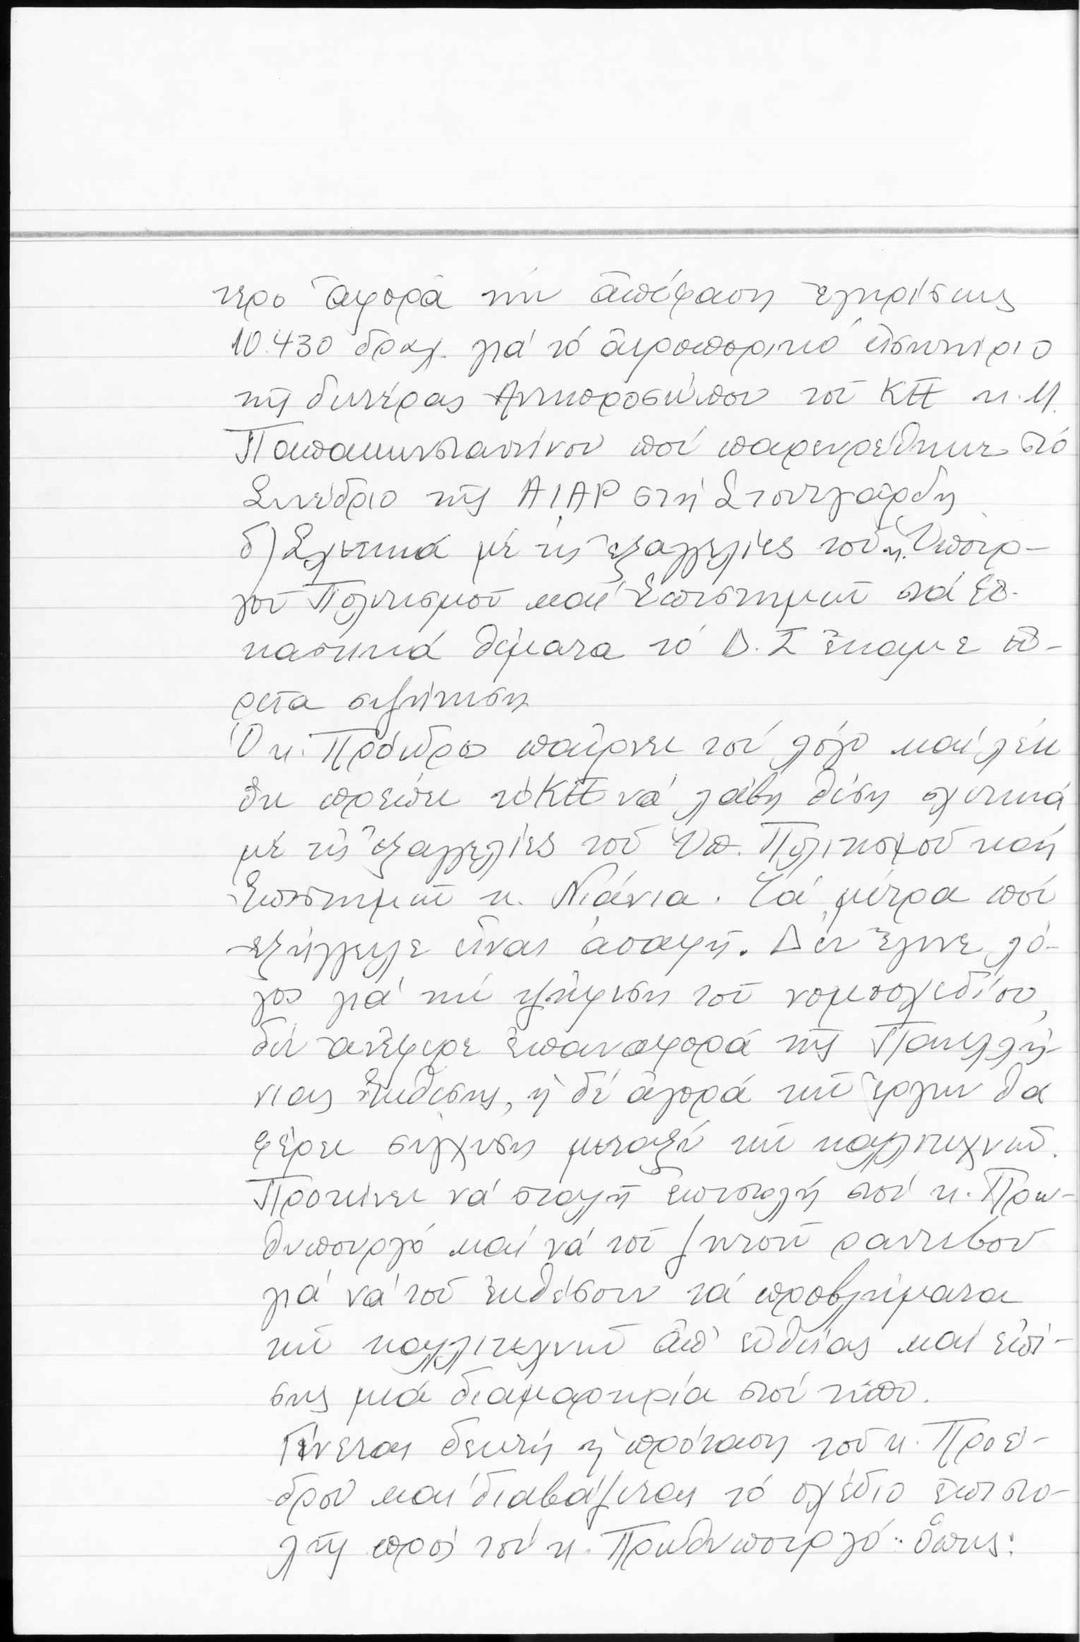 τερο ἀφορᾶ τήν ἀπόφαση ἐγκρίσεως
10.430 δραχ. γιά τό ἀεροπορικό εἰσιτήριο
τῆς δευτέρας Ἀντιπροσώπου τοῦ ΚΕ κ. Μ.
Παπακωνσταντίνου πού παρευρέθηκε στό
Συνέδριο τῆς AIAP στή Στουτγάρδη
δ) Σχετικά μέ τίς ἐξαγγελίες τοῦ κ. Ὑπουρ-
γοῦ Πολιτισμοῦ καί Ἐπιστημῶν στά εἰ-
καστικά θέματα τό Δ.Σ ἔκαμε εὐ-
ρεῖα συζήτηση
Ὁ κ. Πρόεδρος παίρνει τόν λόγο καί λέει
ὅτι πρέπει τό ΚΕ νά λάβη θέση σχετικά
μέ τίς ἐξαγγελίες τοῦ Ὑπ. Πολιτισμοῦ καί
Ἐπιστημῶν κ. Νιάνια. Τά μέτρα πού
ἐξήγγειλε εἶναι ἀσαφῆ. Δέν ἔγινε λό-
γος γιά τήν ψήφιση τοῦ νομοσχεδίου,
δέν ἀνέφερε ἐπαναφορά τῆς Πανελλή-
νιας Ἐκθεσης, ἡ δέ ἀγορά τῶν ἔργων θα
φέρει σύγχυση μεταξύ τῶν καλλιτεχνῶν.
Προτείνει νά σταλῆ ἐπιστολή στόν κ. Πρω-
θυπουργό καί νά τοῦ ζητοῦν ραντεβοῦ
γιά νά τοῦ ἐκθέσουν τά προβλήματα
τῶν καλλιτεχνῶν ἀπ' εὐθείας καί ἐπί-
σης μιά διαμαρτυρία στόν τύπο.
Γίνεται δεκτή ἡ πρόταση τοῦ κ. Προέ-
δρου καί διαβάζεται τό σχέδιο ἐπιστο-
λῆς πρός τόν κ. Πρωθυπουργό: ὅπως: